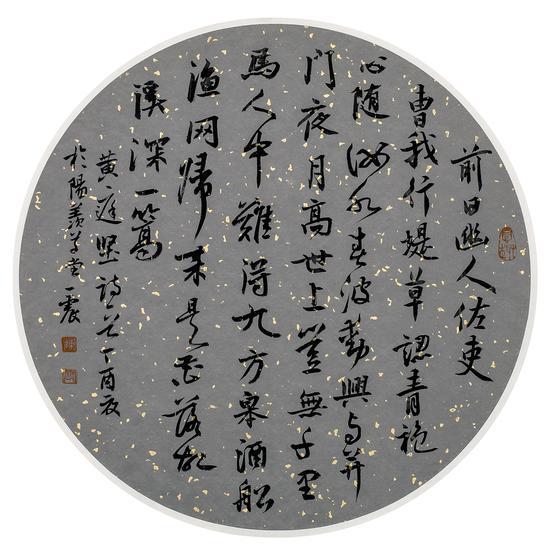 前日幽人佐吏
曹我行堤草認青袍
心随汝水春波動興与并
門夜月高世上豈無千里
馬人中難得九方皋酒船
漁網歸来是花落故
溪深一篙
黄庭堅詩丁酉夏
於陽羡草堂一震